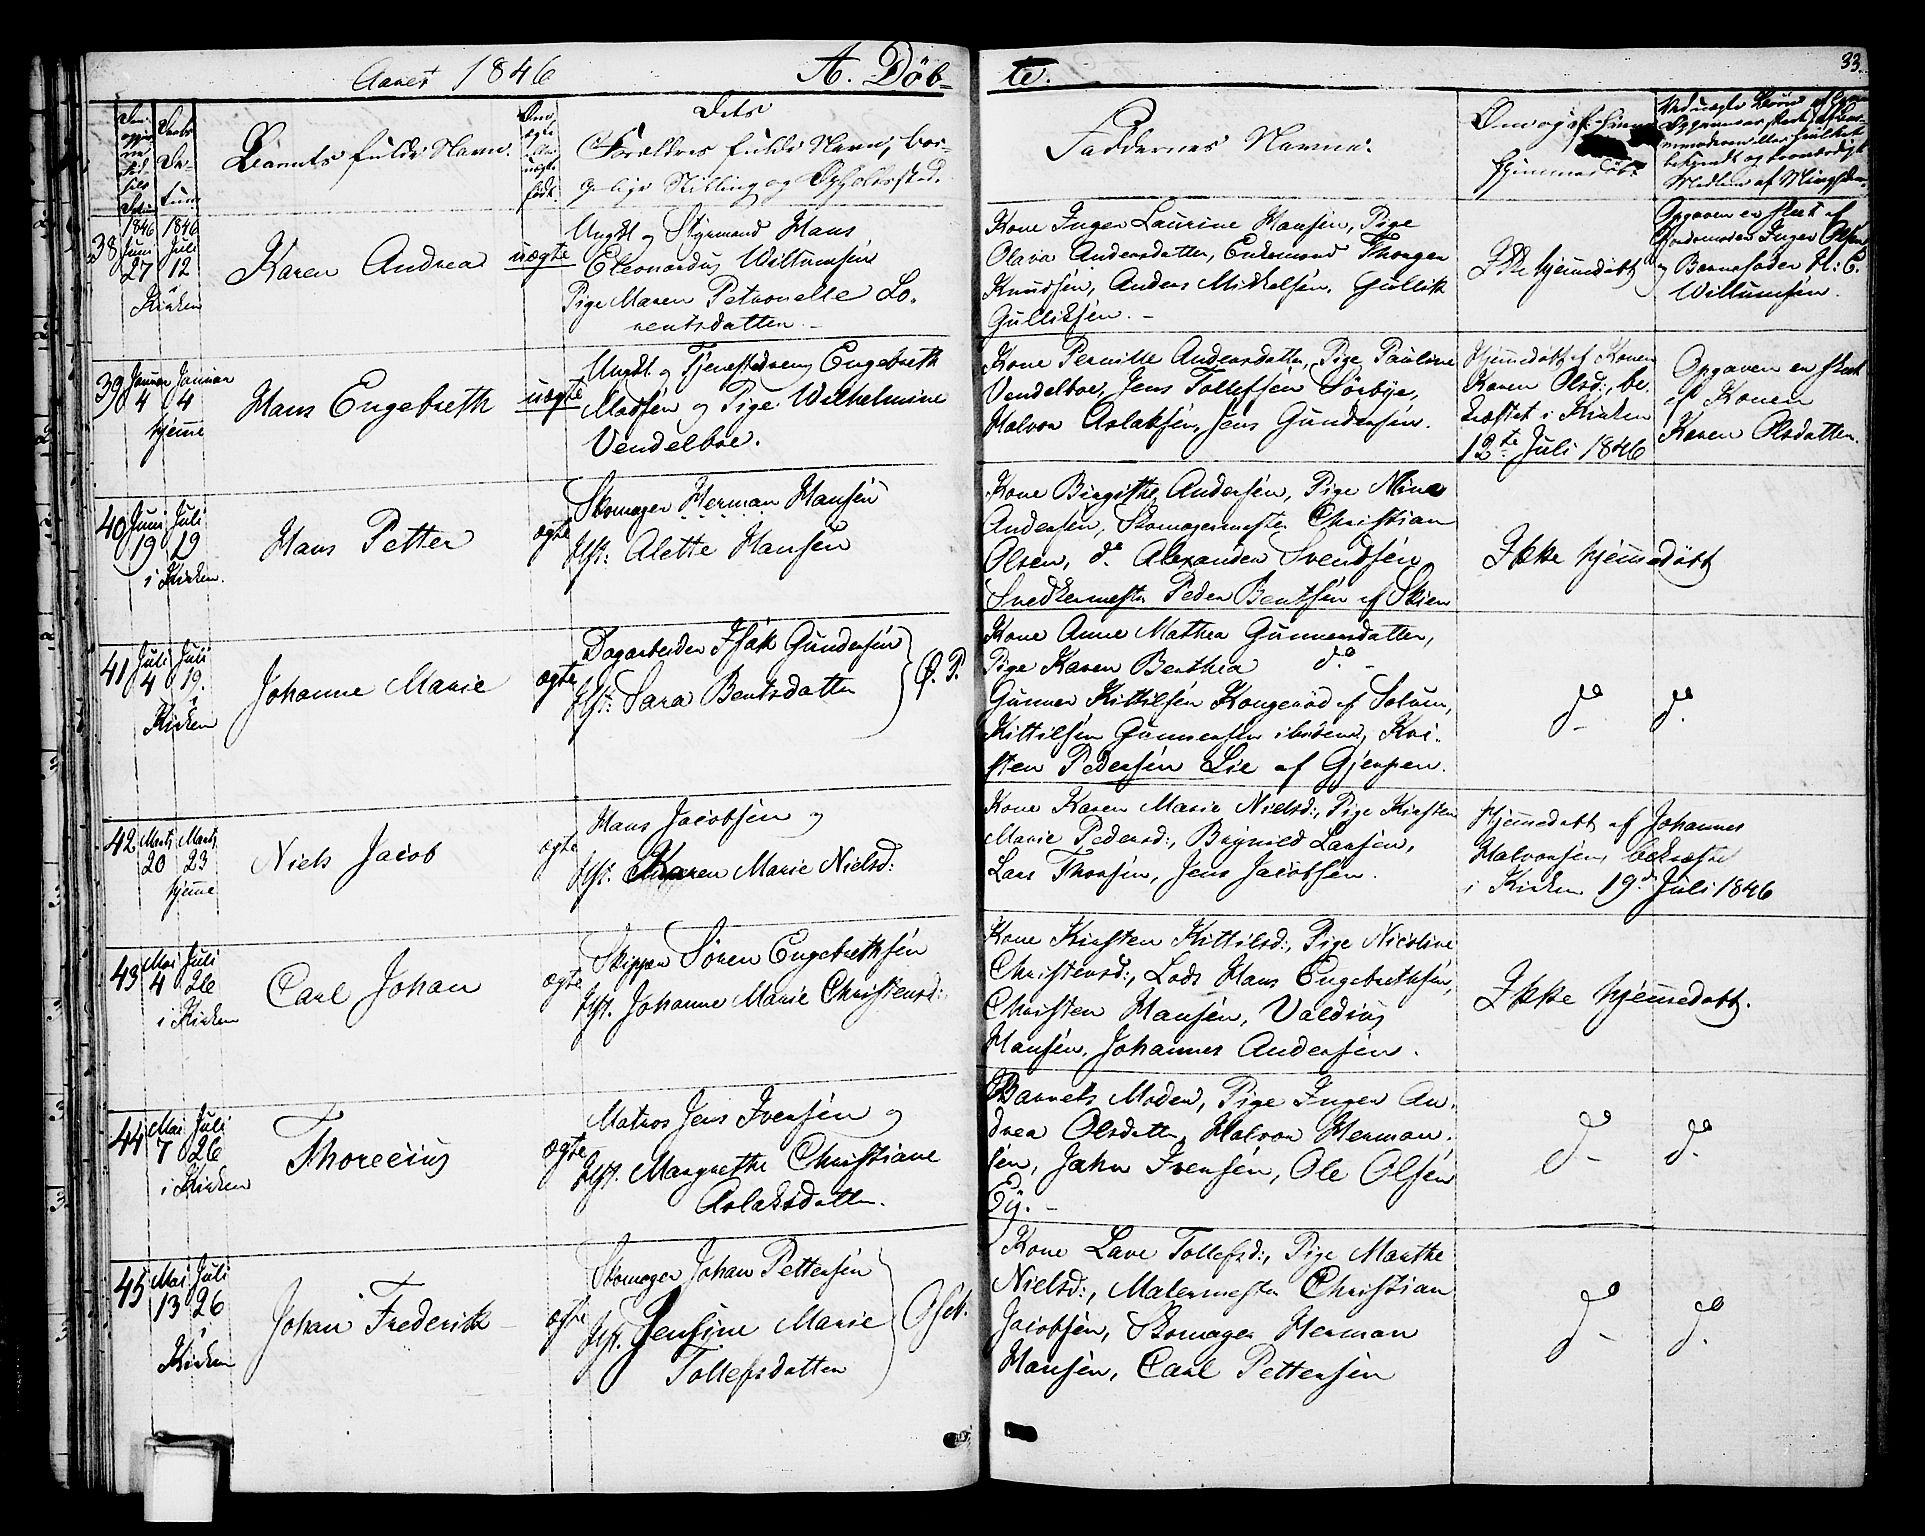 Aaret 1846
A. Döb-
te.
33.
Barnets fulde Navn.
Dets
Forældres fulde Navn, bor-
gelige Stilling og Opholdssted.
Faddernes Navne.
38
1846
Juni
27
1846
Juli
12
i Kirken
Karen Andrea
uægte
Ungkl og Styrmand Hans
Eleonardus Willumsen
Pige Maren Petronelle Lo-
rentsdatter.
Kone Inger Laurine Hansen, Pige
Olava Andersdatter, Enkemand Thorger
Knudsen, Anders Mikkelsen, Gullik
Gulliksen.
Ikke hjemmedöbt
Opgaven er skeet af
Jordemoder Inger Olsen
og Barnefader H: E.
Willumsen.
39
Januar
4
Januar
4
hjemme
Hans Engebreth
uægte
Ungkl og Tjenestedreng Engebreth
Madsen og Pige Wilhelmine
Vendelboe.
Kone Pernille Andersdatter, Pige Pauline
Vendelboe, Jens Tollefsen Sörbye,
Halvor Aslaksen, Jens Gundersen.
Hjemmedöbt af Konen
Karen Olsd:, be-
kræftet i Kirken
12te Juli 1846
Opgaven er skeet
af Konen
Karen Olsdatter.
40
Juni
19
Juli
19
i Kirken.
Hans Petter
ægte
Skomager Herman Hansen
Hst: Alette Hansen
Kone Birgithe Andersen, Pige Nina
Andersen, Skomagermester Christian
Olsen, do Alexander Svendsen
Snedkermester Peder Bentsen af Skien
Ikke hjemmedöbt
41
Juli
4
Juli
19.
i
Kirken
Johanne Marie
ægte
Dagarbeider Isak Gundersen
Hst: Sara Bentsdatter
Ø. P.
Kone Anne Mathea Gunnersdatter,
Pige Karen Berthea do
Gunner Kittilsen Kongerød af Solum,
Kittilsen Gunnersen ibidend, Kri-
sten Pedersen Lie af Gjerpen.
do
do
42
Marts
20
Marts
23
hjemme
Niels Jacob
ægte
Hans Jacobsen og
Hst. Karen Marie Nielsd:
Kone Karen Marie Nielsd:, Pige Kirsten
Marie Pedersd:, Brynild Larsen,
Lars Thorsen, Jens Jacobsen.
Hjemmedöbt af Johannes
Halvorsen, bekræftet
i Kirken 19d Juli 1846
43
Mai
4
Juli
26
i Kirken
Carl Johan
ægte
Skipper Sören Engebrethsen
Hst. Johanne Marie Christensd:
Kone Kirsten Kittilsd:, Pige Nicoline
Christensd:, Lods Hans Engebrethsen,
Christen Hansen, Valdius
Hansen, Johannes Andersen.
Ikke hjemmedöbt.
44
Mai
7
Juli
26
i Kirken
Thorecius
ægte
Matros Jens Ivensen og
Hst. Margrethe Christiane
Aslaksdatter.
Barnets Moder, Pige Inger An-
drea Olsdatter, Halvor Herman-
sen, Jahn Ivensen, Ole Olsen
Ey.
do
do
45
Mai
13
Juli
26
i
Kirken
Johan Frederik
ægte
Skomager Johan Pettersen
Hst. Jensine Marie
Tollefsdatter
Oset.
Kone Lave Tollefsd:, Pige Marthe
Nielsd:, Malermester Christian
Jacobsen, Skomager Herman
Hansen, Carl Pettersen
do
do